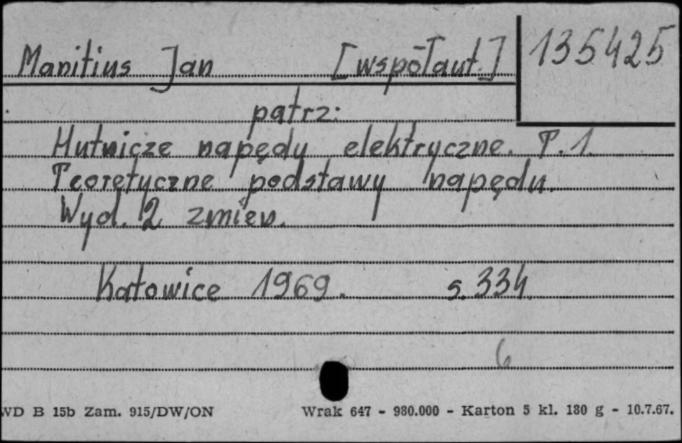 Manitius Jan [współaut.] 135425
patrz:
Hutnicze napędy elektryczne. T.1.
Teoretyczne podstawy napędu.
Wyd. 2 zmien.
Katowice 1969. s. 334
6
WD B 15b Zam. 915/DW/ON Wrak 647 - 980.000 - Karton 5 kl. 180 g - 10.7.67.